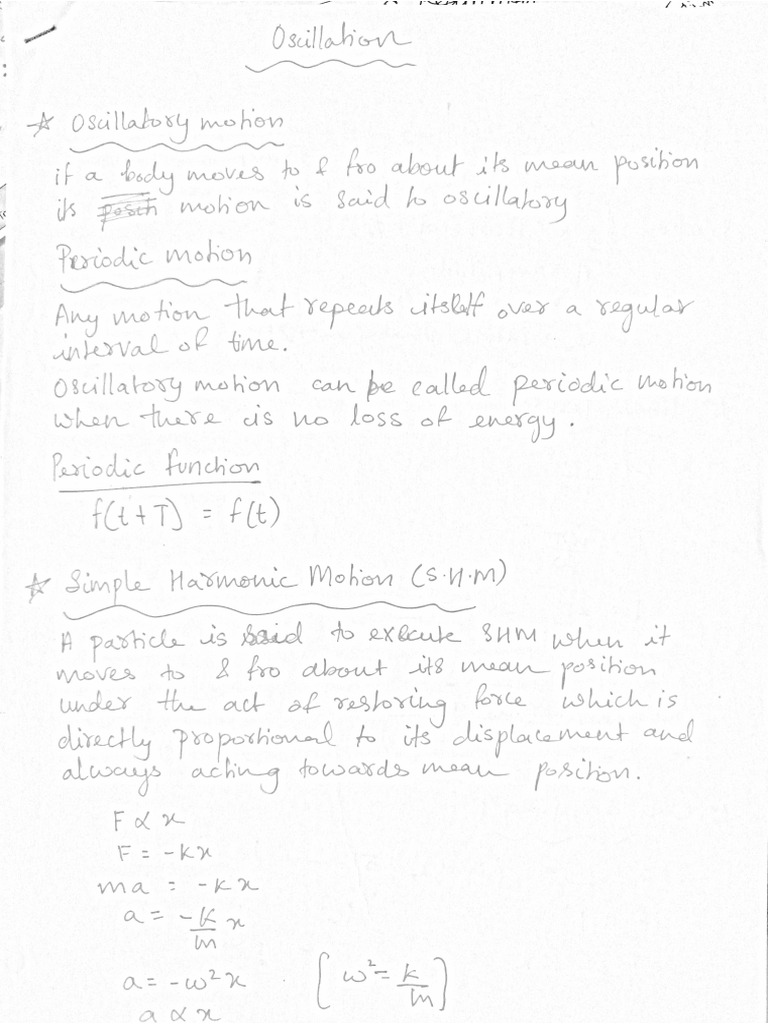 Oscillation
☆ Oscillatory motion
if a body moves to & fro about its mean position
its motion is said to oscillatory
Periodic motion
Any motion that repeats itself over a regular
interval of time.
Oscillatory motion can be called periodic motion
when there is no loss of energy.
Periodic function
f(t+T) = f(t)
☆ Simple Harmonic Motion (S.H.M)
A particle is said to execute SHM when it
moves to & fro about its mean position
under the act of restoring force which is
directly proportional to its displacement and
always acting towards mean position.
F ∝ x
F = -kx
ma = -kx
a = -k/m x
a = -ω²x [ω² = k/m]
a ∝ x